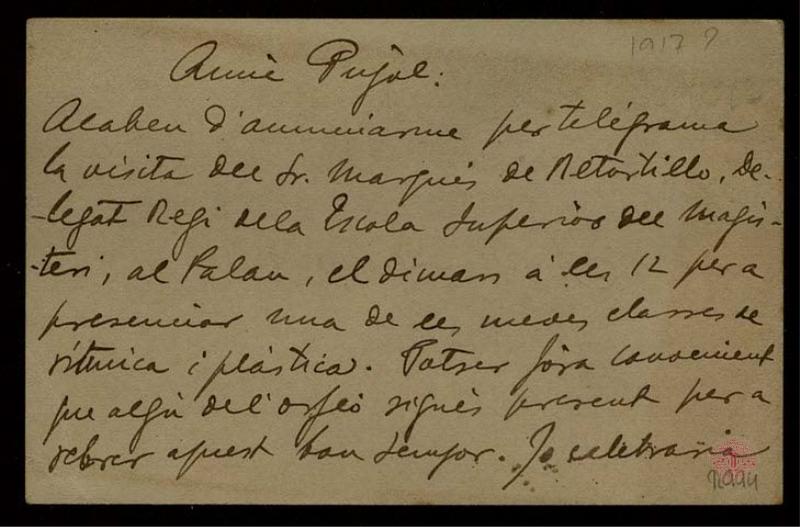 1917?
Amic Pujol:
Acaben d'anunciarme per telégrama
la visita del Sr. Marqués de Retortillo, De-
-legat Regi dela Escola Superior del Magis-
-teri, al Palau, el dimars á les 12 per a
presenciar una de les meves classes de
rítmica i plástica. Potser fora convenient
que algú del'orfeó sigués present per a
rebrer aquest bon senyor. Jo celebraria